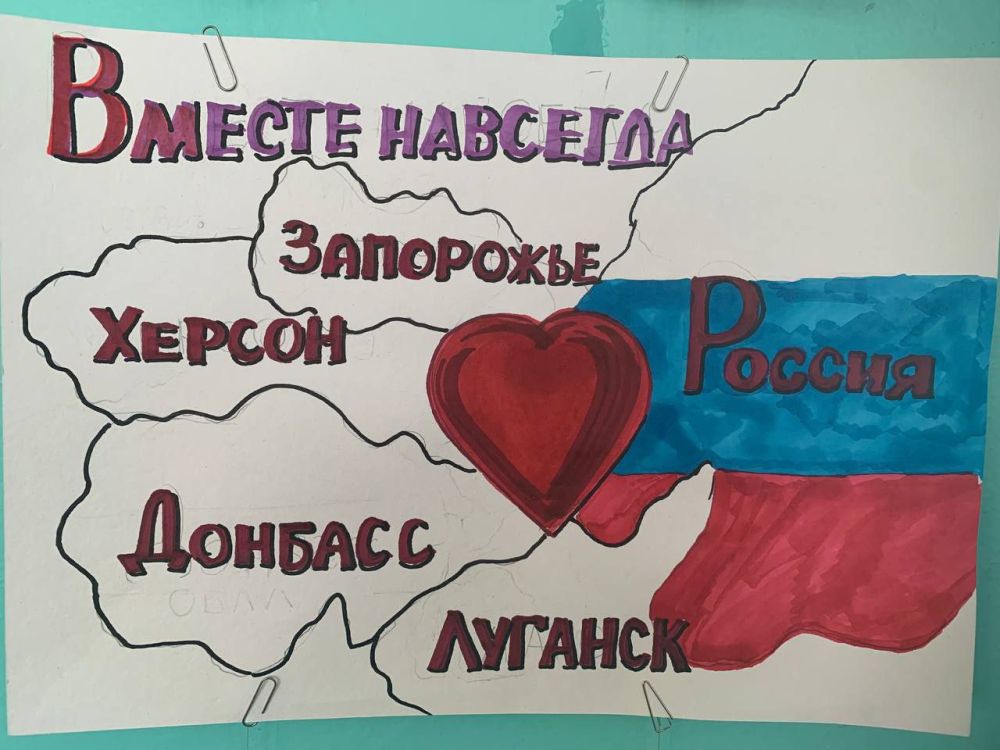 Вместе навсегда
Запорожье
Херсон
Россия
Донбасс
Луганск